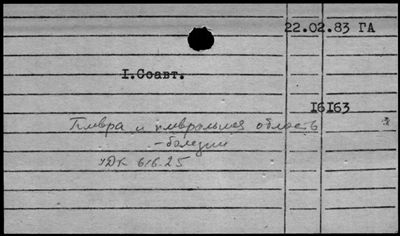 22.02.83 ГА
I.Соавт.
I6I63
Плевра и плевральная область
-болезни
УДК 616.25